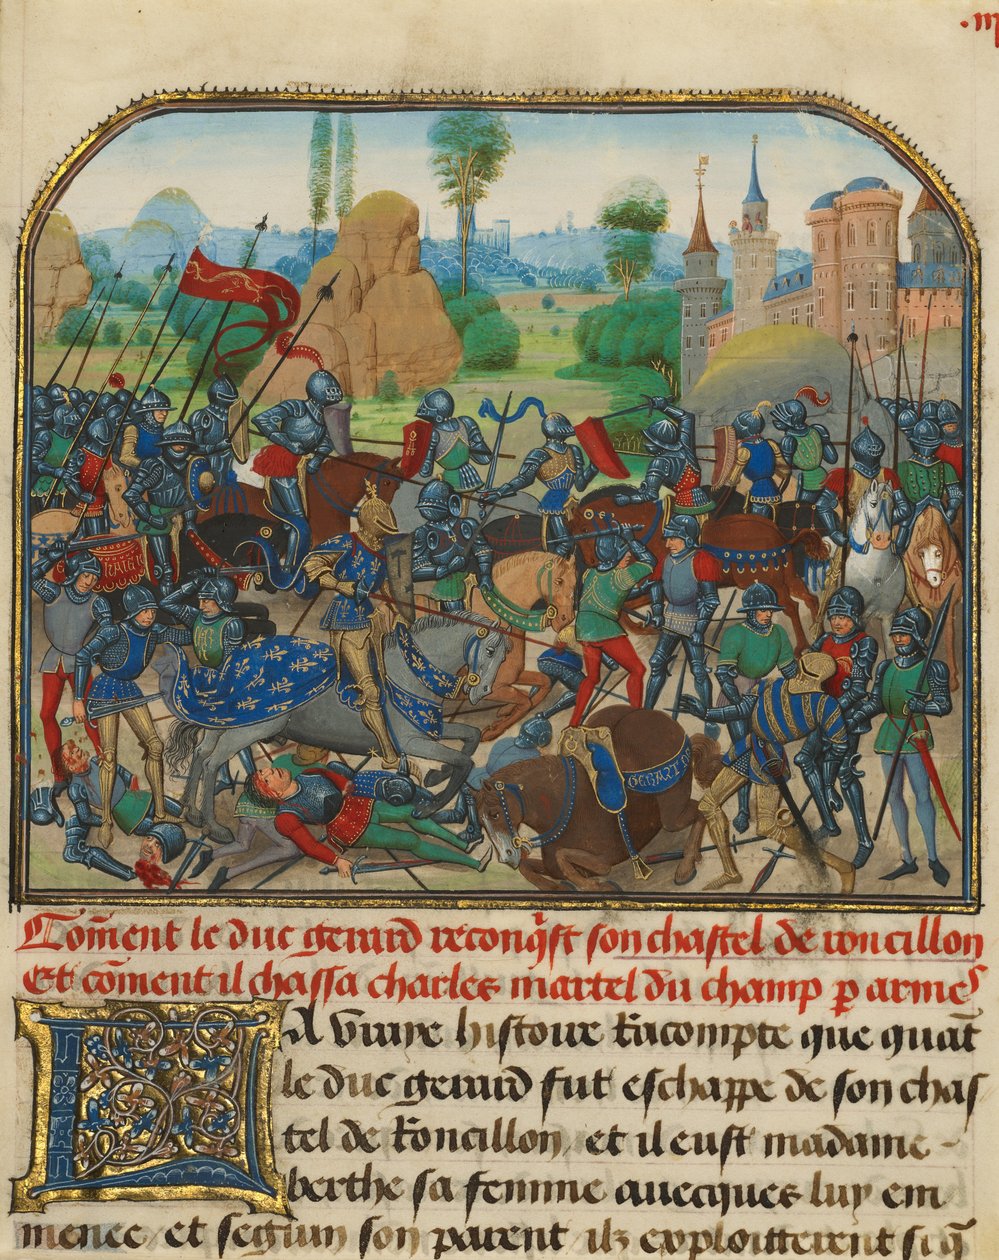 Comẽnt le duc gerard reconq̃st son chastel de roncillon
Et cõment il chassa charles martel du champ p armes
LA Vraye histoire Racompte que quãt
le duc gerard fut eschappe de son chas
tel de Roncillon, et il eust madame
berthe sa femme auecques luy em
menee, et seguin son parent ilz exploitterent